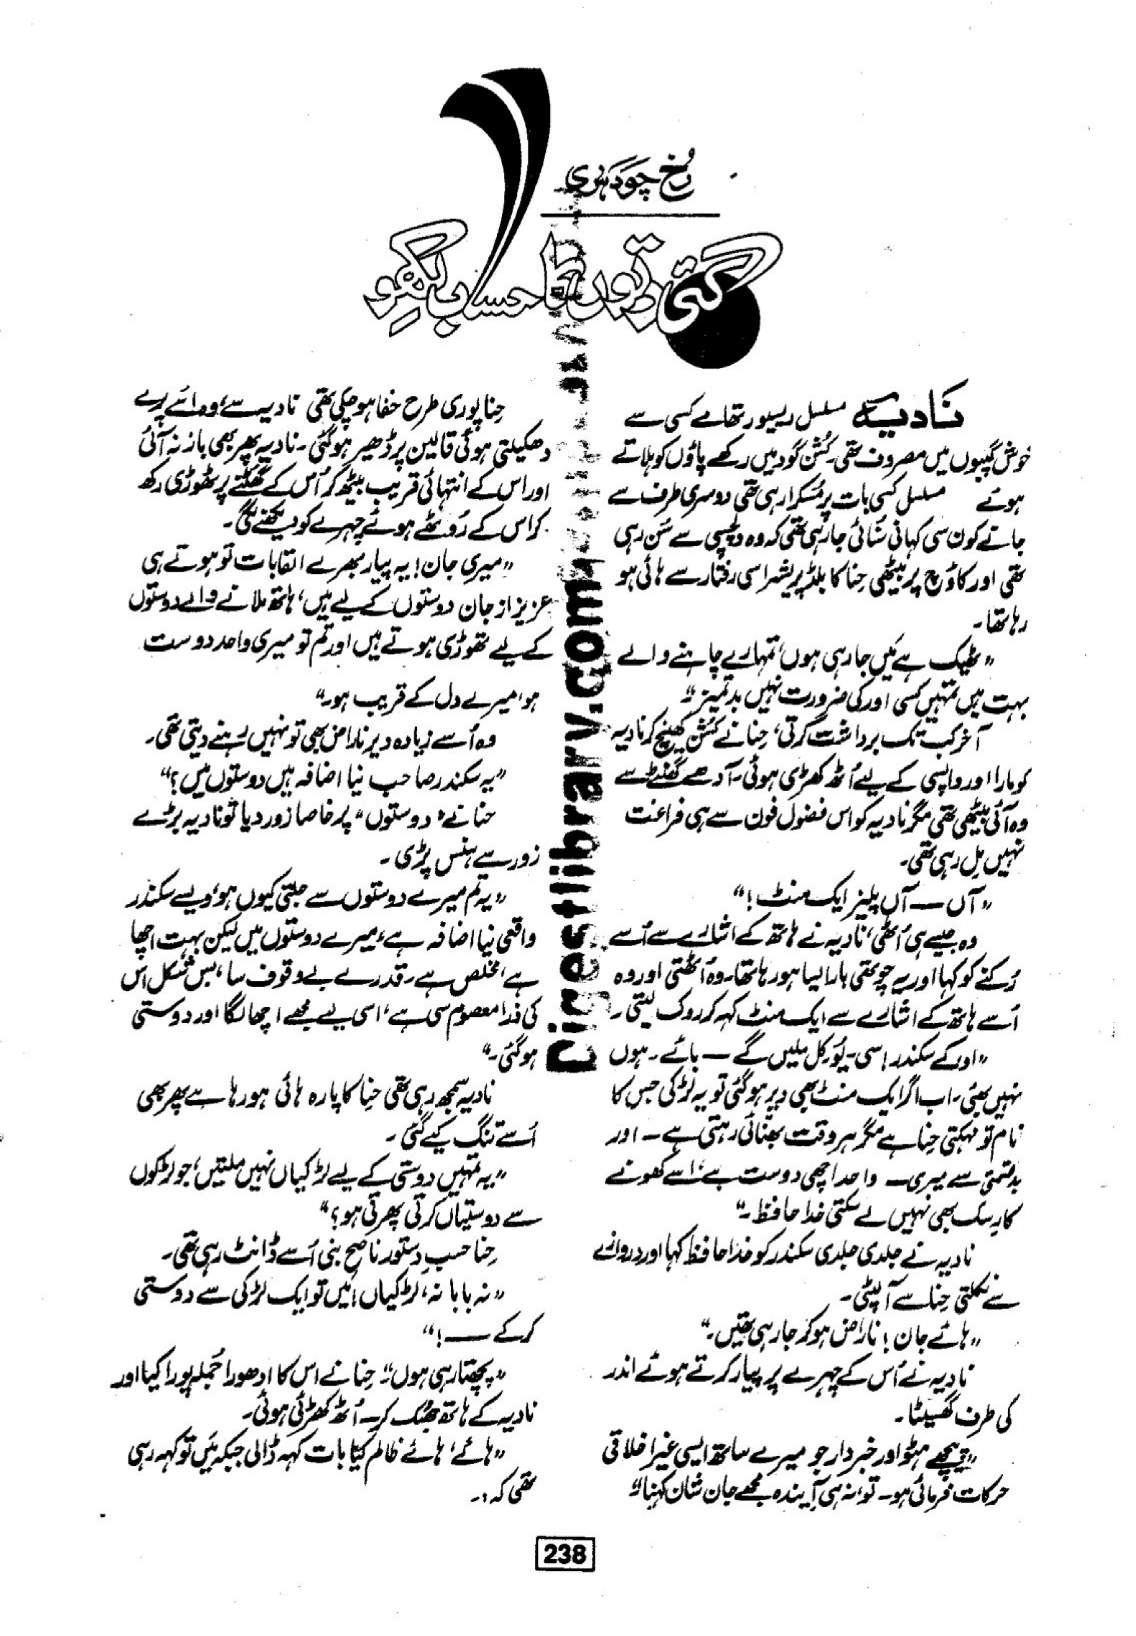 رُخ چودہری
گئی رتوں کا حساب لکھو
نادیہ مسلسل ریسیور تھامے کسی سے
خوش گپیوں میں مصروف تھی۔ کُشن گود میں رکھے پاؤں کو ہلاتے
ہوئے مسلسل کسی بات پر مُسکرا رہی تھی دوسری طرف سے
جانے کون سی کہانی سُنائی جا رہی تھی کہ وہ دلچسپی سے سُن رہی
تھی اور کاؤچ پر بیٹھی حِنا کا بلڈ پریشر اسی رفتار سے ہائی ہو
رہا تھا۔
”ٹھیک ہے مَیں جا رہی ہوں، تمہارے چاہنے والے
بہت ہیں تمہیں کسی اور کی ضرورت نہیں بدتمیز“
آخر کب تک برداشت کرتی، حِنا نے کُشن کھینچ کر نادیہ
کو مارا اور واپسی کے لیے اُٹھ کھڑی ہوئی۔ آدھے گھنٹے سے
وہ آئی بیٹھی تھی مگر نادیہ کو اس فضول فون سے ہی فراغت
نہیں مِل رہی تھی۔
”آں — آں پلیز ایک منٹ!“
وہ جیسے ہی اُٹھی، نادیہ نے ہاتھ کے اشارے سے اُسے
رُکنے کو کہا اور یہ چوتھی بار ایسا ہو رہا تھا۔ وہ اُٹھتی اور وہ
اُسے ہاتھ کے اشارے سے ایک منٹ کہہ کر روک لیتی۔
”اوکے سکندر! سی۔ یُو۔ کل ملیں گے — بائے۔ ہوں
نہیں بھئی۔ اب اگر ایک منٹ بھی دیر ہو گئی تو یہ لڑکی جس کا
نام تو مہکتی حِنا ہے مگر ہر وقت بھنّائی رہتی ہے — اور
بدقسمتی سے میری — واحد اچھی دوست ہے، اسے کھونے
کا رِسک بھی نہیں لے سکتی خدا حافظ۔“
نادیہ نے جلدی جلدی سکندر کو خدا حافظ کہا اور دروازے
سے نکلتی حِنا سے آ لپٹی۔
”ہائے جان! ناراض ہو کر جا رہی تھیں۔“
نادیہ نے اُس کے چہرے پر پیار کرتے ہوئے اندر
کی طرف گھسیٹا۔
”پیچھے ہٹو اور خبردار جو میرے ساتھ ایسی غیر اخلاقی
حرکات فرمائی ہو۔ تو، نہ ہی آیندہ مجھے جان شان کہنا“
حِنا پوری طرح خفا ہو چکی تھی نادیہ سے، وہ اُسے پرے
دھکیلتی ہوئی قالین پر ڈھیر ہو گئی۔ نادیہ پھر بھی باز نہ آئی
اور اس کے انتہائی قریب بیٹھ کر اُس کے گھٹنے پر ٹھوڑی رکھ
کر اس کے رُوٹھے ہوئے چہرے کو دیکھنے لگی۔
”میری جان! یہ پیار بھرے القابات تو ہوتے ہی
عزیز از جان دوستوں کے لیے ہیں، ہاتھ ملانے والے دوستوں
کے لیے تھوڑی ہوتے ہیں اور تم تو میری واحد دوست
ہو، میرے دل کے قریب ہو۔“
وہ اُسے زیادہ دیر ناراض بھی تو نہیں رہنے دیتی تھی۔
”یہ سکندر صاحب نیا اضافہ ہیں دوستوں میں؟“
حنا نے ”دوستوں“ پر خاصا زور دیا تو نادیہ بڑے
زور سے ہنس پڑی۔
”یہ تم میرے دوستوں سے جلتی کیوں ہو، ویسے سکندر
واقعی نیا اضافہ ہے، میرے دوستوں میں لیکن بہت اچھا
ہے، مخلص ہے۔ قدرے بے وقوف سا، بس شکل اس
کی ذرا معصوم سی ہے، اسی لیے مجھے اچھا لگا اور دوستی
ہو گئی۔“
نادیہ سمجھ رہی تھی حِنا کا پارہ ہائی ہو رہا ہے پھر بھی
اُسے تنگ کیے گئی۔
”یہ تمہیں دوستی کے لیے لڑکیاں نہیں ملتیں، جو لڑکوں
سے دوستیاں کرتی پھرتی ہو؟“
حِنا حسبِ دستور ناصح بنی اُسے ڈانٹ رہی تھی۔
”نہ بابا نہ، لڑکیاں! مَیں تو ایک لڑکی سے دوستی
کر کے — !“
”پچھتا رہی ہوں“ حِنا نے اس کا ادھورا جُملہ پورا کیا اور
نادیہ کے ہاتھ جھٹک کر — اُٹھ کھڑی ہوئی۔
”ہائے، ہائے ظالم کیا بات کہہ ڈالی جبکہ مَیں تو کہہ رہی
تھی کہ۔
Digestlibrary.com
238